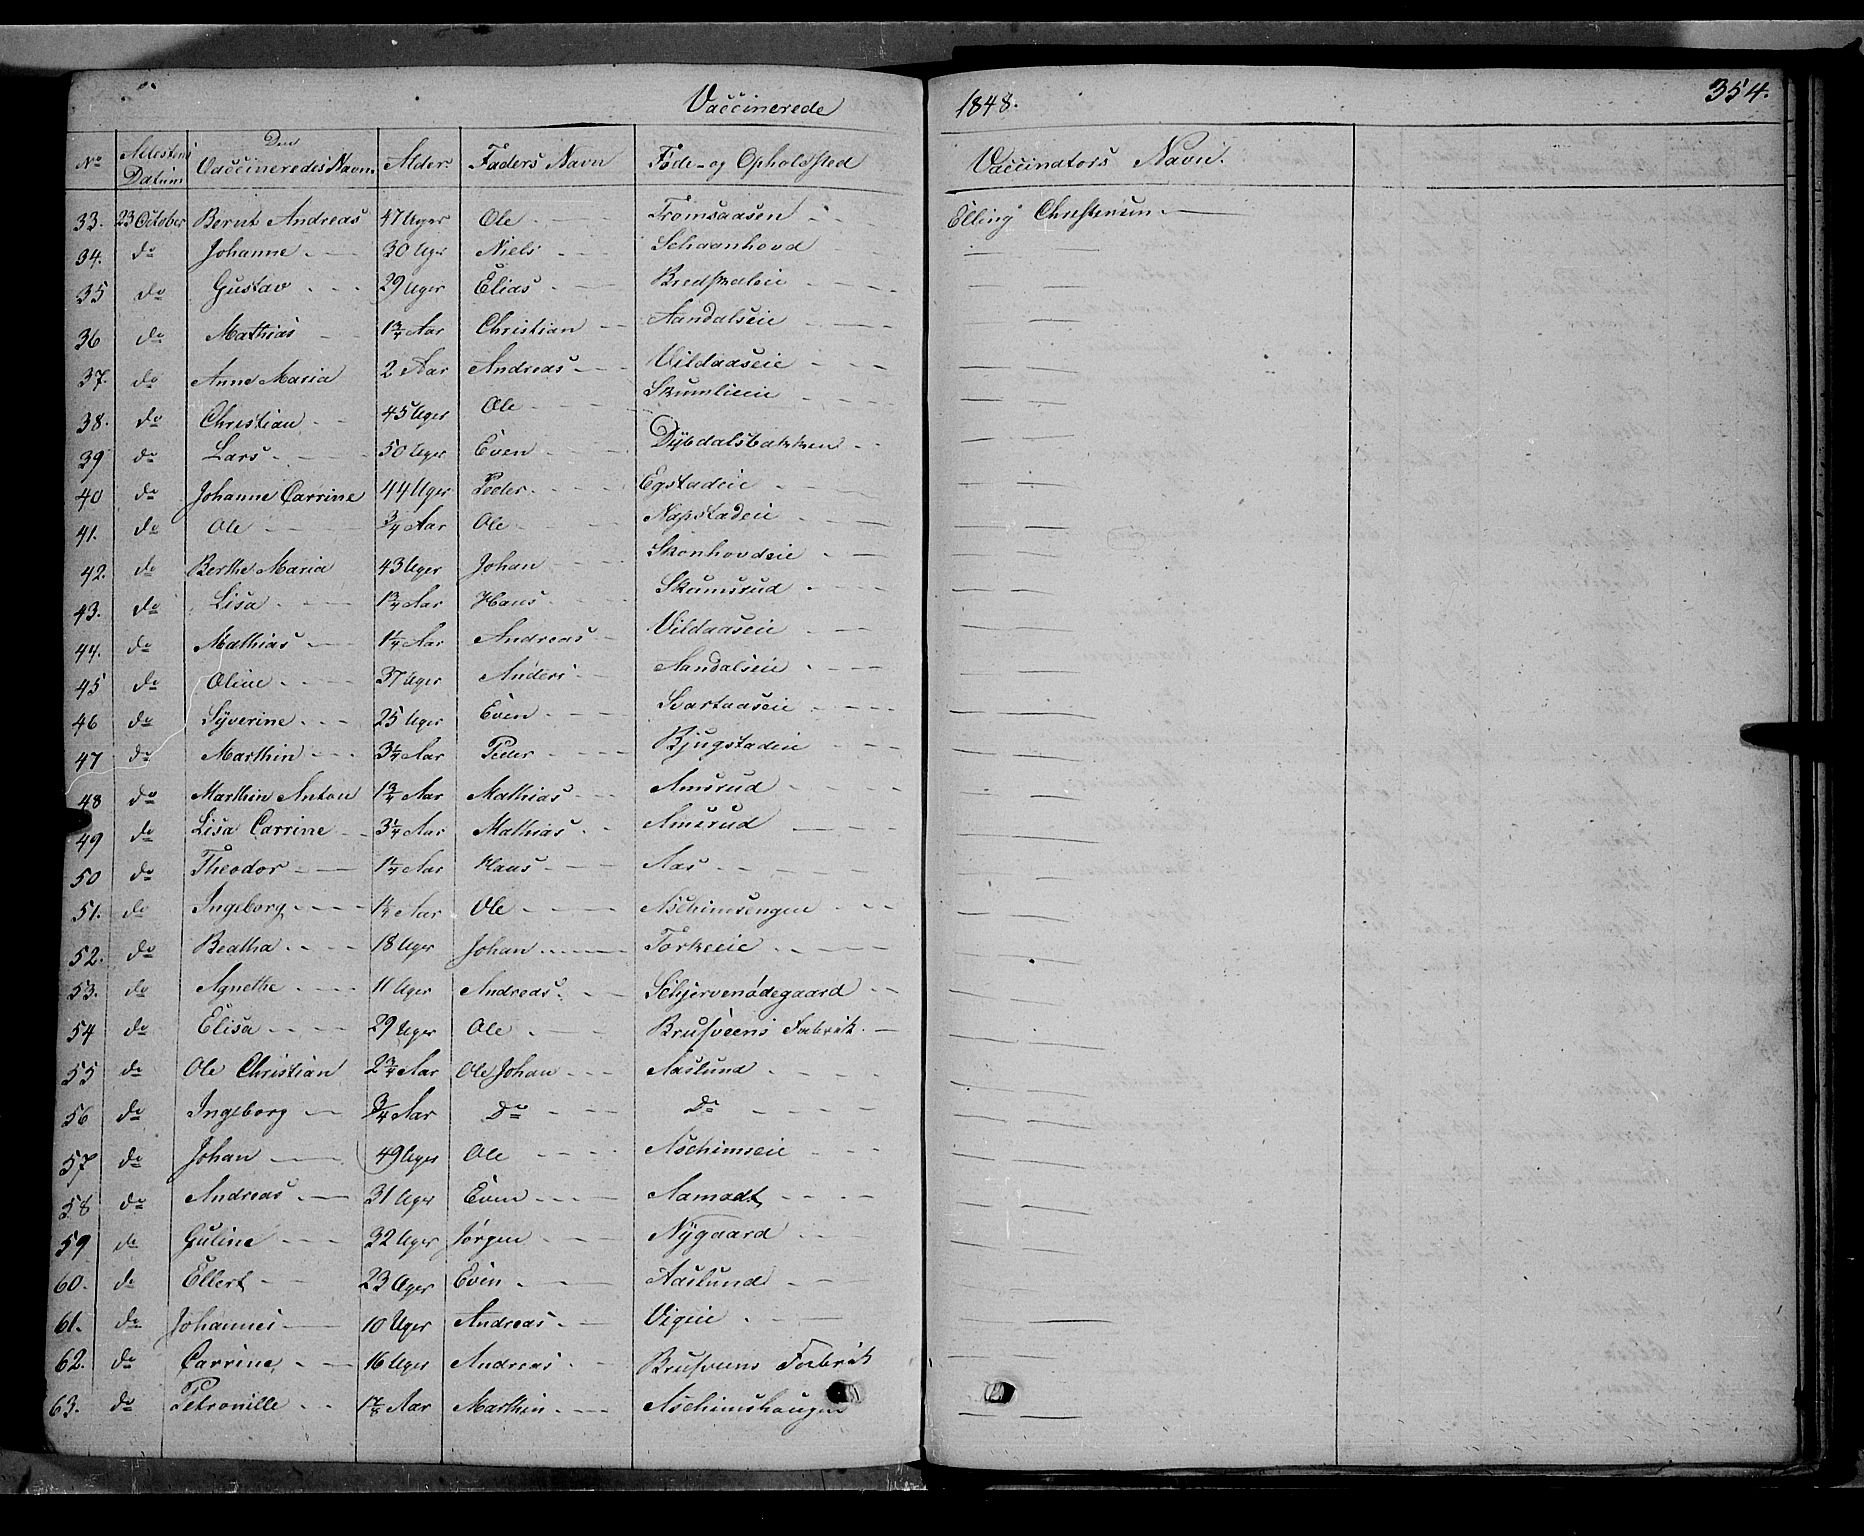 Vaccinerede 1848. 354.
No Attestens Datum Den Vaccineredes Navn Alder Faders Navn Føde- og Opholdsted Vaccinators Navn.
33. 23 October Bernt Andreas 47 Uger Ole Fromsaasen Elling Christensen
34. do Johanne 30 Uger Niels Schaanhovd
35 do Gustav 29 Uger Elias
36 do Mathias 1 3/4 Aar Christian Aandalseie
37. do Anne Maria 2 Aar Andreas Vildaaseie
38. do Christian 45 Uger Ole Skumlieeie
39 do Lars 50 Uger Even Dybdalsbakken
40 do Johanne Carrine 44 Uger Peder Egstadeie
41. do Ole 3/4 Aar Ole Napstadeie
42. do Berthe Maria 43 Uger Johan Skonhovdeie
43. do Lisa 1 3/4 Aar Hans Skumsrud
44. do Mathias 1 1/4 Aar Andreas Vildaaseie
45 do Oline 37 Uger Anders Aandalseie
46 do Syverine 25 Uger Even Svartaaseie
47 do Marthin 3 1/4 Aar Peder Bjugstadeie
48 do Marthin Anton 1 3/4 Aar Mathias Amsrud
49 do Lisa Carrine 3 1/4 Aar Mathias Amsrud
50 do Theodor 1 1/4 Aar Hans Aas
51. do Ingeborg 1 1/4 Aar Ole Aschimsengen
52. do Beatha 18 Uger Johan Torkeeie
53. do Agnethe 11 Uger Andreas Schjervenødegaard
54 do Elisa 29 Uger Ole Brusveens Fabrik
55 do Ole Christian 2 3/4 Aar Ole Johan Aaslund
56 do Ingeborg 3/4 Aar Do Do
57 do Johan 49 Uger Ole Aschimseie
58 do Andreas 31 Uger Even Aamodt
59 do Guline 32 Uger Jørgen Nygaard
60. do Ellert 23 Uger Even Aaslund
61. do Johannes 10 Uger Andreas Vigeie
62. do Carrine 16 Uger Andreas Brusveens Fabrik
63. do Petronille 1 7/8 Aar Marthin Aschimshaugen